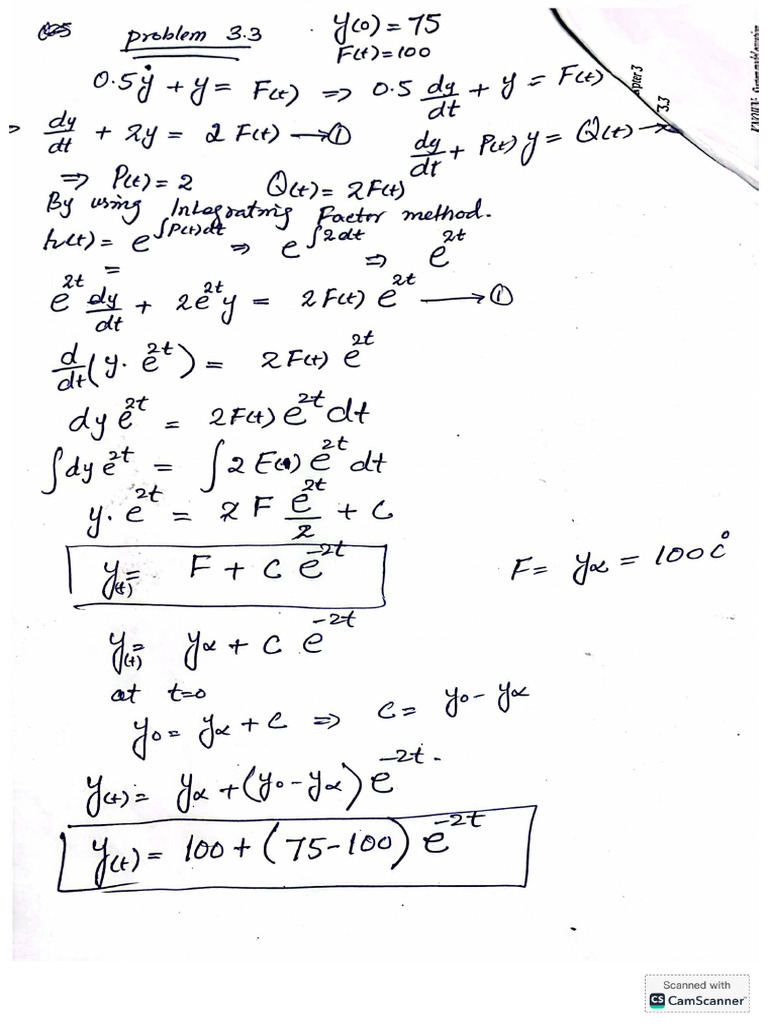 problem 3.3
y(0) = 75
F(t) = 100
0.5ẏ + y = F(t) ⇒ 0.5 dy/dt + y = F(t)
dy/dt + 2y = 2 F(t) → ①
dy/dt + P(t) y = Q(t)
⇒ P(t) = 2 Q(t) = 2F(t)
By using Integratnig Factor method.
h(t) = e^∫P(t)dt ⇒ e^∫2dt ⇒ e^2t
e^2t dy/dt + 2e^2t y = 2 F(t) e^2t → ①
d/dt (y. e^2t) = 2 F(t) e^2t
dy e^2t = 2F(t) e^2t dt
∫dy e^2t = ∫2 F(t) e^2t dt
y. e^2t = 2 F e^2t/2 + C
y(t) = F + C e^-2t
F = y∝ = 100 c°
y(t) = y∝ + C e^-2t
at t=0
y0 = y∝ + C ⇒ C = y0 - y∝
y(t) = y∝ + (y0 - y∝) e^-2t.
y(t) = 100 + (75-100) e^-2t
pter 3
3.3
Scanned with
CS CamScanner